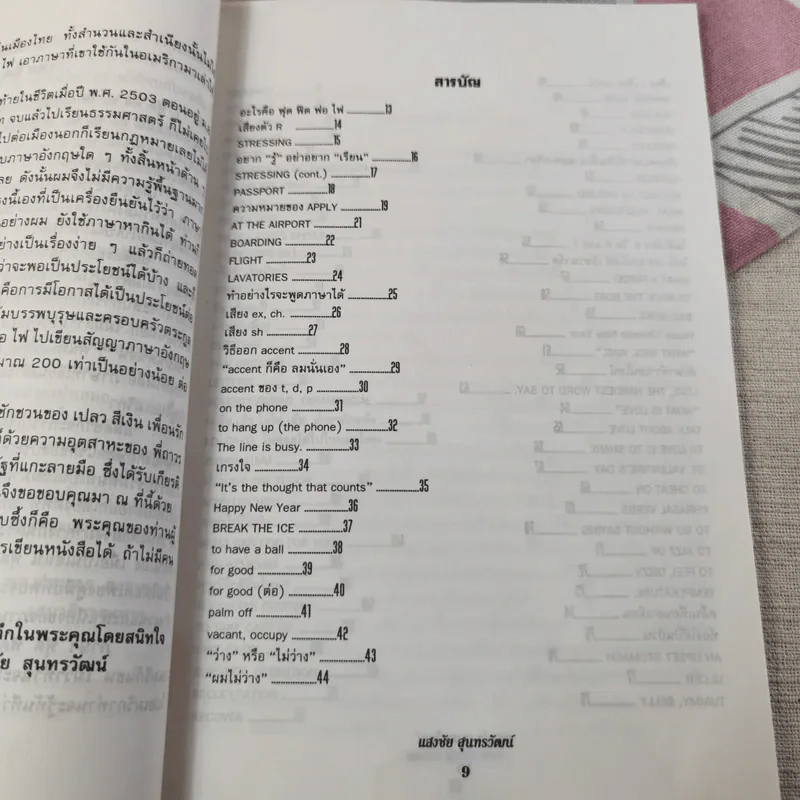 ในเมืองไทย ทั้งสำนวนและสำเนียงนั้นไม่
ไฟ เอาภาษาที่เขาใช้กันในอเมริกามาเล่า
ท้ายในชีวิตเมื่อปี พ.ศ. 2503 ตอนอยู่
จบแล้วไปเรียนธรรมศาสตร์ ก็ไม่เคย
ไปต่อเมืองนอกก็เรียนกฎหมายเลยไม่ได้
ภาษาอังกฤษใด ๆ ทั้งสิ้นหน้าด้าน
ดังนั้นผมจึงไม่มีความรู้พื้นฐานมาก
งนี้เองที่เป็นเครื่องยืนยันไว้ว่า ภาษา
อย่างผม ยังใช้ภาษาหากินได้
ย่างเป็นเรื่องง่าย ๆ แล้วก็ถ่ายทอด
ว่าจะพอเป็นประโยชน์ได้บ้าง และก็
คือการมีโอกาสได้เป็นประโยชน์ต่อ
บรรพบุรุษและครอบครัวตระกูล
ไฟ ไปเขียนสัญญาภาษาอังกฤษ
มาณ 200 เท่าเป็นอย่างน้อย ต่อ
ชักชวนของ เปลว สีเงิน เพื่อนรัก
ด้วยความอุตสาหะของ พี่ถาวร
ที่แกะลายมือ ซึ่งได้รับเกียรติ
จึงขอขอบคุณมา ณ ที่นี้ด้วย
บซึ้งก็คือ พระคุณของท่านผู้
รเขียนหนังสือได้ ถ้าไม่มีคน
ึกในพระคุณโดยสนิทใจ
ชัย สุนทรวัฒน์
สารบัญ
อะไรคือ ฟุด ฟิด ฟอ ไฟ ..........13
เสียงตัว R ..........14
STRESSING ..........15
อยาก “รู้” อย่าอยาก “เรียน” ..........16
STRESSING (cont.) ..........17
PASSPORT ..........18
ความหมายของ APPLY ..........19
AT THE AIRPORT ..........21
BOARDING ..........22
FLIGHT ..........23
LAVATORIES ..........24
ทำอย่างไรจะพูดภาษาได้ ..........25
เสียง ex, ch. ..........26
เสียง sh ..........27
วิธีออก accent ..........28
“accent ก็คือ ลมนั่นเอง” ..........29
accent ของ t, d, p ..........30
on the phone ..........31
to hang up (the phone) ..........32
The line is busy. ..........33
เกรงใจ ..........34
“It's the thought that counts” ..........35
Happy New Year ..........36
BREAK THE ICE ..........37
to have a ball ..........38
for good ..........39
for good (ต่อ) ..........40
palm off ..........41
vacant, occupy ..........42
“ว่าง” หรือ “ไม่ว่าง” ..........43
“ผมไม่ว่าง” ..........44
แสงชัย สุนทรวัฒน์
9